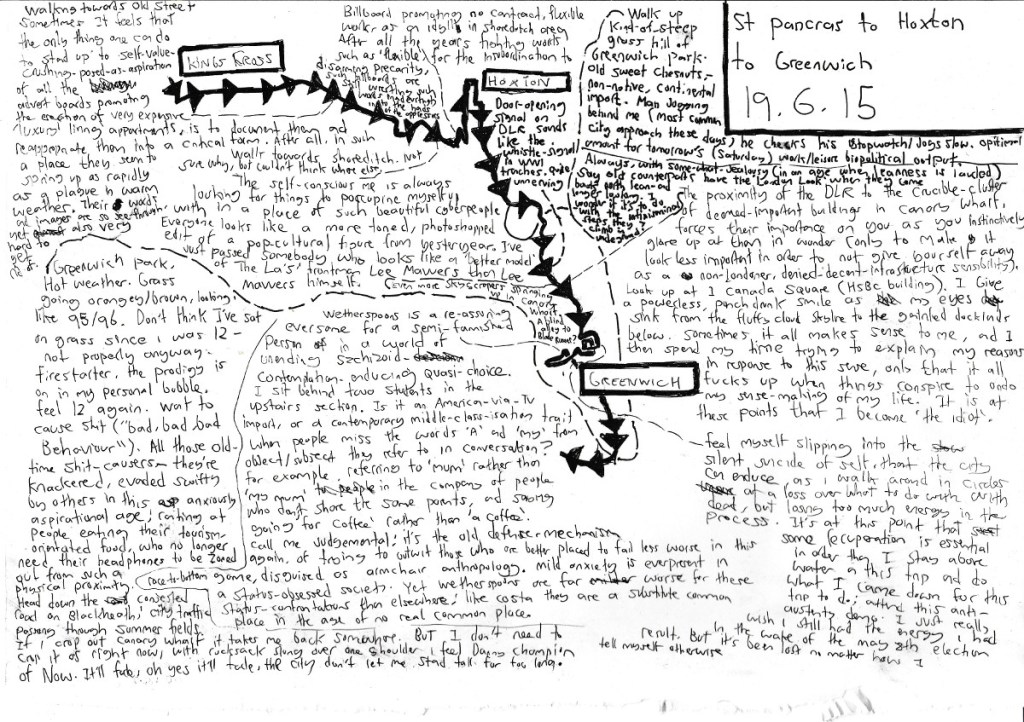 St pancras to Hoxton
to Greenwich
19.6.15
KINGS CROSS
HOXTON
GREENWICH
Walking towards Old Street
sometimes it feels that
the only thing one can do
to 'stand up' to self-value-
crushing-posed-as-aspiration
of all the
advert boards promoting
the erection of very expensive
'luxury' living appartments, is to document them and
reappropriate them into a critical form. After all, in such
a place they seem to
spring up as rapidly
as a plague in warm
weather. Their words
yet also very
hard to
Billboard promoting no contract, flexible
work as an idyll in shoreditch area
After all the years fighting words
such as 'flexible' for the insubordination to
disarming precarity,
such billboards are
Walk towards shoreditch. Not
sure why, but couldn't think where else.
The self-conscious me is always
looking for things to porcupine myself up
with in a place of such beautiful cyberpeople
Everyone looks like a more toned, photoshopped
edit of a pop-cultural figure from yesteryear. I've
just passed somebody who looks like a 'better model'
of The La's' frontman Lee Mavvers than Lee
Mavvers himself.
(Even more skyscrapers springing
up in canary
Wharf.
Walk up
kind-of-steep
grass hill of
Greenwich Park.
Old sweet chesnuts,
non-native, continental
import. Man Jogging
behind me (most common
city approach these days), he cheers his stopwatch/Jogs slow. optional
ement for tomorrow's (Saturday) work/leisure biopolitical output.
Door-opening
signal on
DLR sounds
like the
whistle-signal
to WW1
traches. quite
unnerving
Always, with some-what-Jealousy (in an age when leanness is lauded)
Say old counterparts have the London Look when they come
back path lean-and
longer-looking. I
wonder if it's to do
with the
steps they
climb on the
underground
The proximity of the DLR to the crucible-cluster
of deemed-important buildings in Canary Wharf,
forces their importance on you as you instinctively
glare up at them in wonder (only to make it
look less important in order to not give yourself away
as a non-londoner, denied-decent-infrastructure sensibility).
Look up at 1 canada square (HSBC building). I Give
a powerless, punchdrunk smile as my eyes do
sink from the fluffy cloud skyline to the docklands
below. Sometimes it all makes sense to me, and I
then spend my time trying to explain my reasons
in response to this sense, only that it all
fucks up when things conspire to undo
my sense-making of my life. It is at
these points that I become 'the idiot'.
Greenwich Park,
Hot weather. Grass
going orangey/brown, looking
like 95/96. Don't think I've sat
on grass since I was 12 -
not properly anyway.
firestarter, the prodigy is
on in my personal bubble,
feel 12 again. Want to
cause shit ("bad, bad bad
Behaviour"). All those old-
time shit-causers - they're
knackered, evaded swiftly
by others in this anxiously
aspirational age; ranting at
people eating their tourism-
orientated food, who no longer
need their headphones to be zoned
out from such a
physical proximity.
Head down the contested
road on Blackheath; city traffic
passing through summer fields.
If I crop out Canary wharf it takes me back somewhere. BUT I don't need to
crop it of right now, with rucksack slung over one shoulder I feel Danny champion
of Now. It'll fade, oh yes it'll fade, the city don't let me stand tall for too long.
Wetherspoons is a re-assuring
eversome for a semi-famished
person in a world of
unending schizoid-
Contemplation-enducing quasi-choice.
I sit behind two students in the
upstairs section. Is it an American-via-TV
import, or a contemporary middle-class-isation trait
when people miss the words 'A' and 'my' from
object/subject they refer to in conversation?
for example, referring to 'mum' rather than
'my mum' in the company of people
who don't share the same parents, and saying
'going for coffee' rather than 'a coffee'.
Call me Judgemental; it's the old defense-mechanism
again, of trying to outwit those who are better placed to fail less worse in this
race-to-bottom game, disguised as armchair anthropology. Mild anxiety is everpresent in
a status-obsessed society. Yet wetherspoons are far worse for these
status-confrontations than elsewhere; like costa they are a substitute common
place in the age of no real common place.
feel myself slipping into the
silent suicide of self, that the city
can enduce as I walk around in circles
at a loss over what to do with
dead, but losing too much energy in the
process. It's at this point that
some recuperation is essential
in order that I stay above
water on this trip and do
what I came down for this
trip to do; attend this anti-
austerity demo. I Just really
wish I still had the energy I had
in the wake of the may 8th election
result. But it's been lost no matter how I
tell myself otherwise